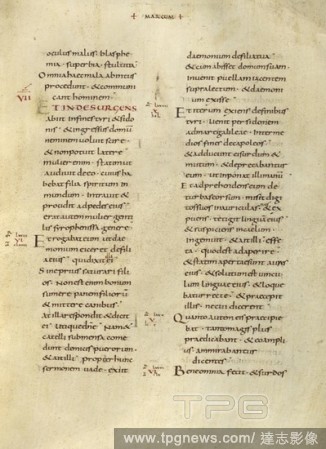 + MARCUM +
oculus malus blasphe
mia superbia stultitia
Omnia haec mala abintus
procedunt & communi
cant hominem
VII
ET INDE SURGENS
abiit in fines tyri & sido
nis & ingressus domū
neminem voluit scire
& non potuit latere
mulier enim statim ut
audivit de eo cuius ha
bebat filia spiritum in
mundum intravit &
procidit ad pedes eius
erat autem mulier genti
lis syrophenissa genere
Et rogabat eum ut dae
monium eiceret de filia
eius qui dixit illi
Sine prius saturari filios
Non est enim bonum
sumere panem filiorū
& mittere canibus
at illa respondit & dicit
ei utique dn̄e Nam &
catelli sub mensa come
dunt de micis puerorum
& ait illi propter hunc
sermonem vade exiit
daemonium de filia tua
& cum abisset domum suam
invenit puellam iacentem
supra lectum & daemoni
um exisse
Et iterum exiens de finibus
tyri venit per sidonem
ad mare galileae inter me
dios fines decapoleos
& adducunt ei surdum &
mutum & deprecabantur
eum ut inponat illi manū
Et adprehendens eum de
turba seorsum misit digi
tos suos in auriculas & ex
puens tetigit linguā eius
& suspiciens in caelum
ingemuit & ait illi effe
ta quod est adaperire
& statim apertae sunt aures
eius & solutum est vincu
lum linguae eius & loque
batur recte & praecepit
illis ne cui dicerent
Quanto autem eis praecipie
bat tanto magis plus
praedicabant & eo amplius
ammirabantur
dicentes
Bene omnia fecit & surdos
TPG
www.tpgnews.com/ 達志影像